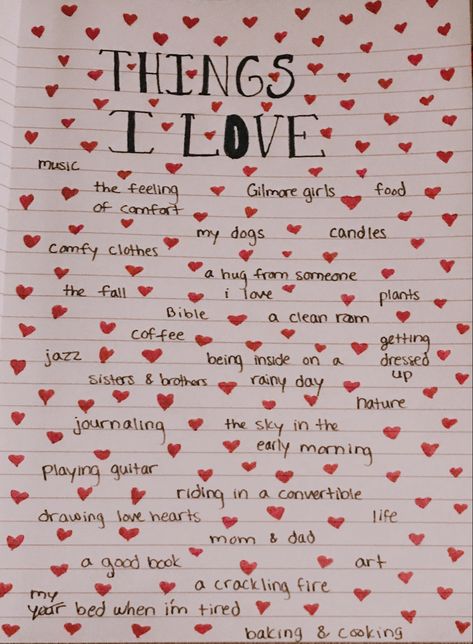 THINGS
I LOVE
music
the feeling Gilmore girls food
of comfort
my dogs candles
comfy clothes
a hug from someone
the fall i love plants
Bible a clean room
coffee getting
jazz being inside on a dressed
up
sisters & brothers rainy day
nature
journaling the sky in the
early morning
playing guitar
riding in a convertible
drawing love hearts life
mom & dad
a good book art
a crackling fire
my
your bed when i'm tired
baking & cooking